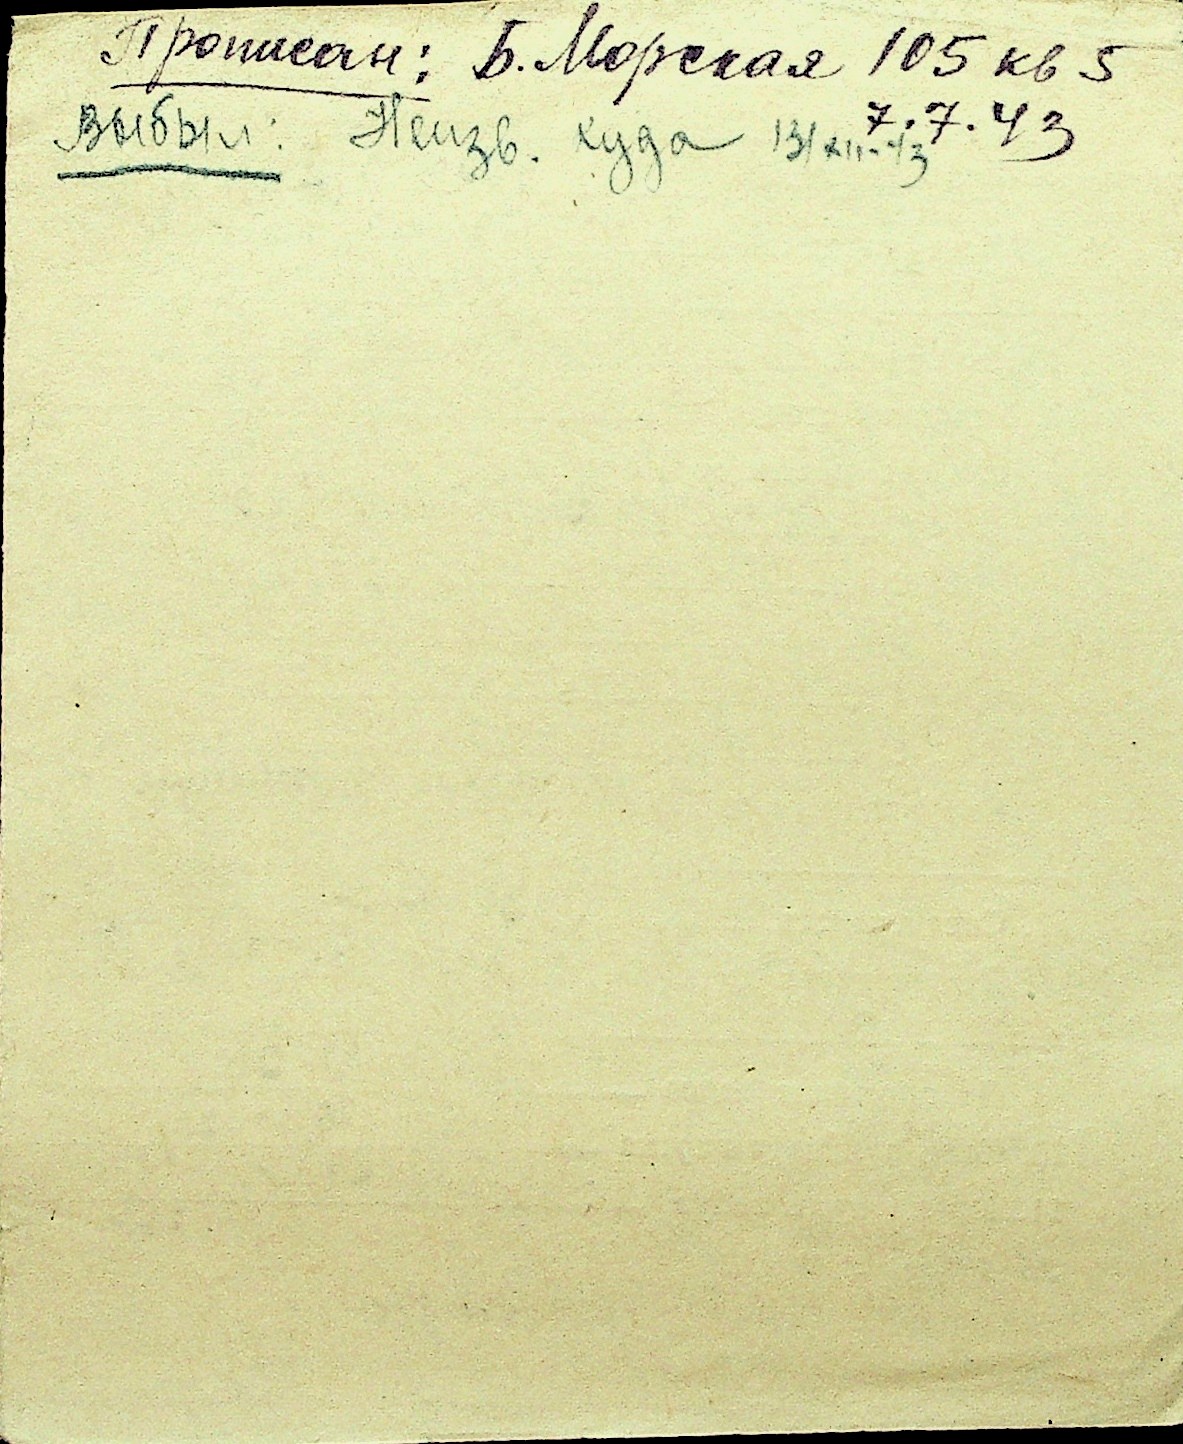 Прописан: Б. Морская 105 кв 5
7.7.43
Выбыл: Неизв. куда 13/XII-43